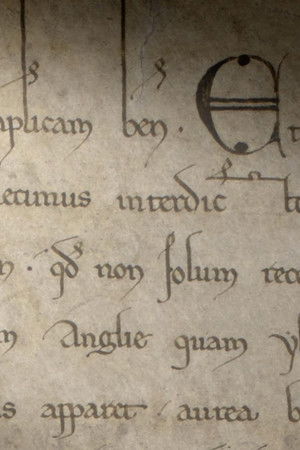 aplicam ben · E
ecimus interdic
qd non solum rec
Anglie quam
apparet aurea b